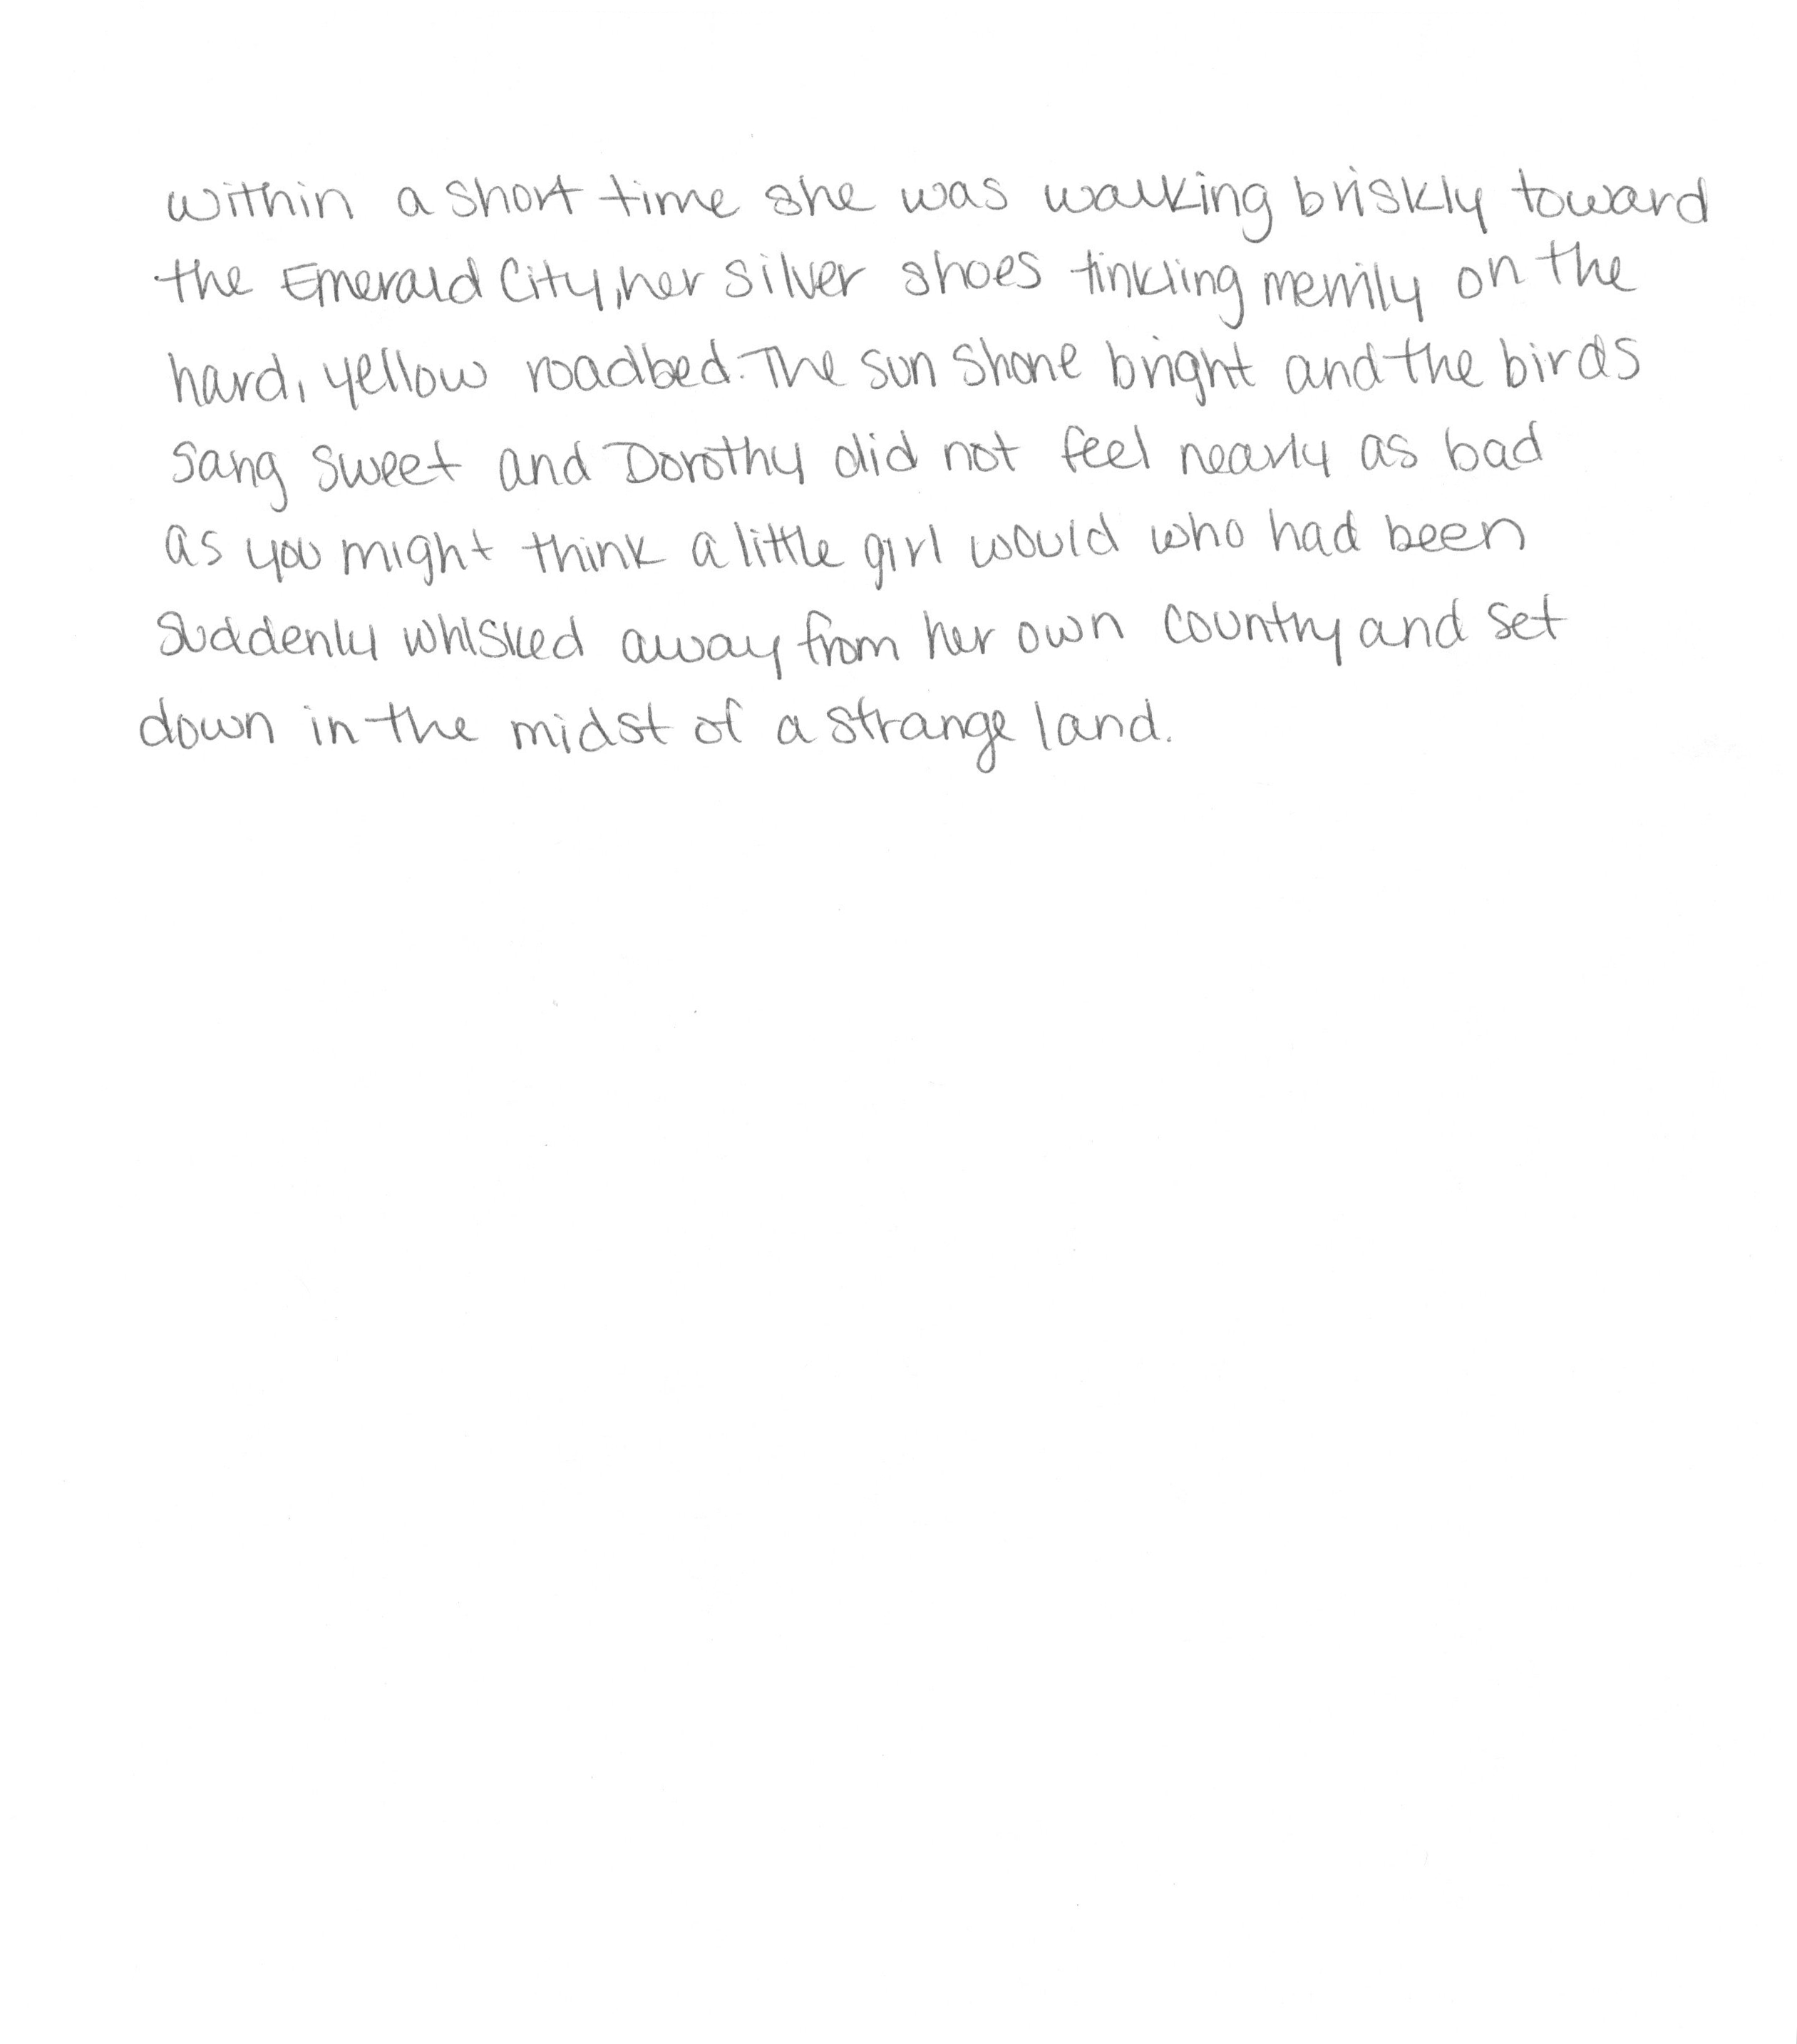 within a short time she was walking briskly toward
the Emerald City, her silver shoes tinkling merrily on the
hard, yellow roadbed. The sun shone bright and the birds
sang sweet and Dorothy did not feel nearly as bad
as you might think a little girl would who had been
suddenly whisked away from her own country and set
down in the midst of a strange land.